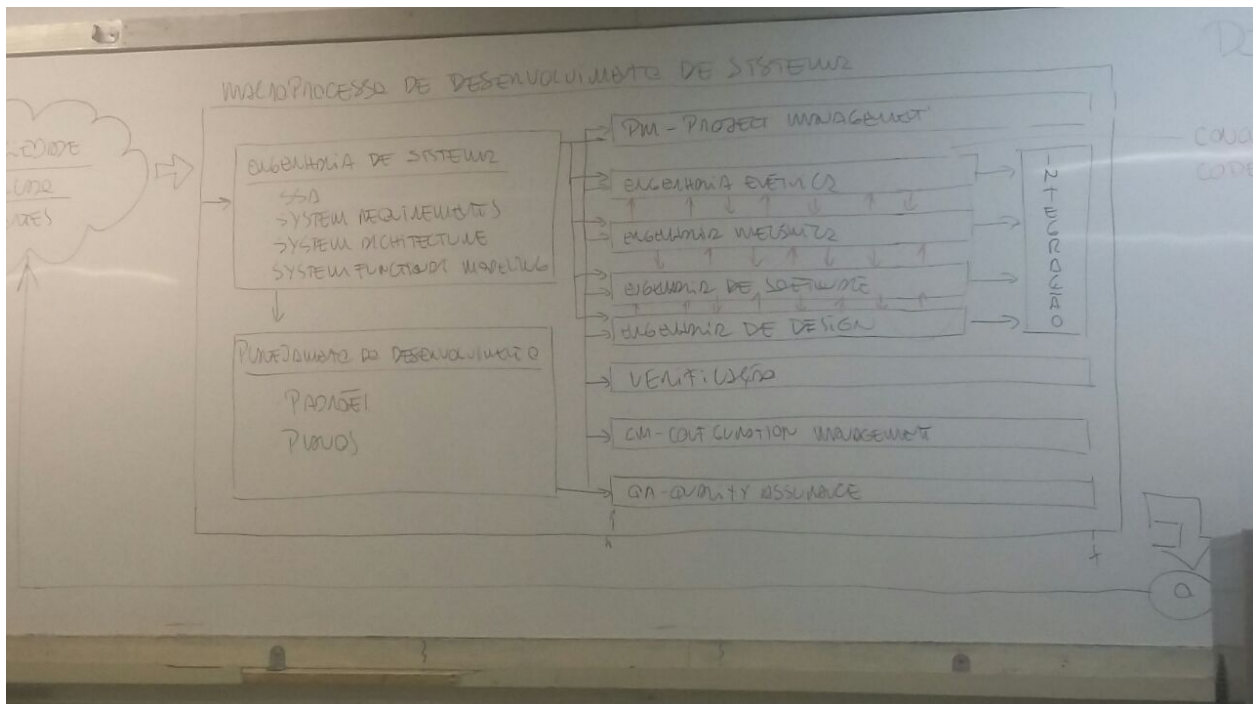 MACROPROCESSO DE DESENVOLVIMENTO DE SISTEMAS
ENGENHARIA DE SISTEMAS
SYSTEM REQUIREMENTS
SYSTEM ARCHITECTURE
SYSTEM FUNCTIONAL MODELING
PLANEJAMENTO DO DESENVOLVIMENTO
PADRÕES
PLANOS
PM - PROJECT MANAGEMENT
ENGENHARIA ELETRICA
ENGENHARIA MECANICA
ENGENHARIA DE SOFTWARE
ENGENHARIA DE DESIGN
VERIFICAÇÃO
CM - CONFIGURATION MANAGEMENT
QA - QUALITY ASSURANCE
INTEGRAÇÃO